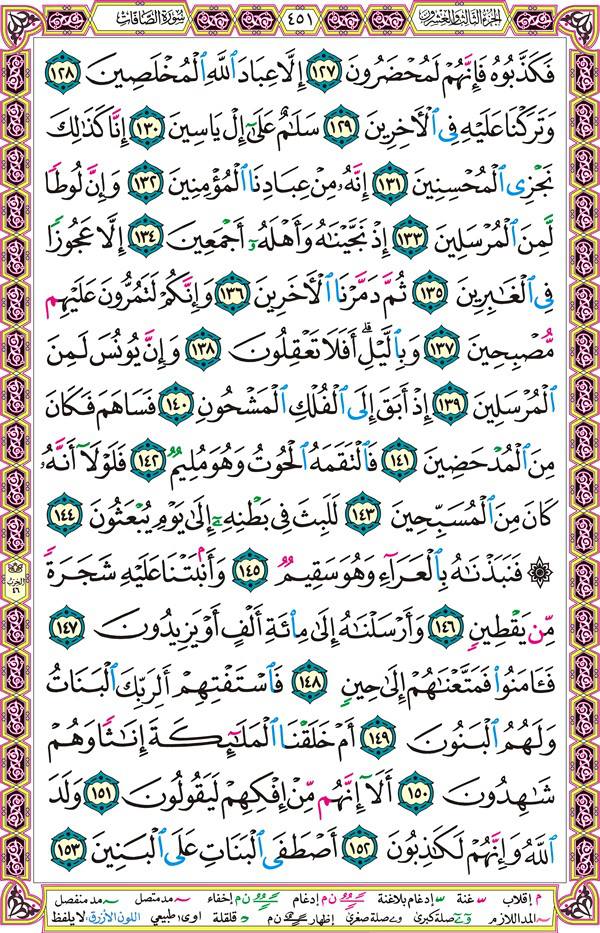 الجزء الثالث والعشرون ٤٥١ سورة الصافات
فَكَذَّبُوهُ فَإِنَّهُمْ لَمُحْضَرُونَ ١٢٧ إِلَّا عِبَادَ ٱللَّهِ ٱلْمُخْلَصِينَ ١٢٨
وَتَرَكْنَا عَلَيْهِ فِى ٱلْأَخِرِينَ ١٢٩ سَلَٰمٌ عَلَىٰٓ إِلْ يَاسِينَ ١٣٠ إِنَّا كَذَٰلِكَ
نَجْزِى ٱلْمُحْسِنِينَ ١٣١ إِنَّهُۥ مِنْ عِبَادِنَا ٱلْمُؤْمِنِينَ ١٣٢ وَإِنَّ لُوطًا
لَّمِنَ ٱلْمُرْسَلِينَ ١٣٣ إِذْ نَجَّيْنَٰهُ وَأَهْلَهُۥٓ أَجْمَعِينَ ١٣٤ إِلَّا عَجُوزًا
فِى ٱلْغَٰبِرِينَ ١٣٥ ثُمَّ دَمَّرْنَا ٱلْأَخَرِينَ ١٣٦ وَإِنَّكُمْ لَتَمُرُّونَ عَلَيْهِم
مُّصْبِحِينَ ١٣٧ وَبِٱلَّيْلِ ۗ أَفَلَا تَعْقِلُونَ ١٣٨ وَإِنَّ يُونُسَ لَمِنَ
ٱلْمُرْسَلِينَ ١٣٩ إِذْ أَبَقَ إِلَى ٱلْفُلْكِ ٱلْمَشْحُونِ ١٤٠ فَسَاهَمَ فَكَانَ
مِنَ ٱلْمُدْحَضِينَ ١٤١ فَٱلْتَقَمَهُ ٱلْحُوتُ وَهُوَ مُلِيمٌ ١٤٢ فَلَوْلَآ أَنَّهُۥ
كَانَ مِنَ ٱلْمُسَبِّحِينَ ١٤٣ لَلَبِثَ فِى بَطْنِهِۦٓ إِلَىٰ يَوْمِ يُبْعَثُونَ ١٤٤
۞ فَنَبَذْنَٰهُ بِٱلْعَرَآءِ وَهُوَ سَقِيمٌ ١٤٥ وَأَنۢبَتْنَا عَلَيْهِ شَجَرَةً
مِّن يَقْطِينٍ ١٤٦ وَأَرْسَلْنَٰهُ إِلَىٰ مِا۟ئَةِ أَلْفٍ أَوْ يَزِيدُونَ ١٤٧
فَـَٔامَنُوا۟ فَمَتَّعْنَٰهُمْ إِلَىٰ حِينٍ ١٤٨ فَٱسْتَفْتِهِمْ أَلِرَبِّكَ ٱلْبَنَاتُ
وَلَهُمُ ٱلْبَنُونَ ١٤٩ أَمْ خَلَقْنَا ٱلْمَلَٰٓئِكَةَ إِنَٰثًا وَهُمْ
شَٰهِدُونَ ١٥٠ أَلَآ إِنَّهُم مِّنْ إِفْكِهِمْ لَيَقُولُونَ ١٥١ وَلَدَ
ٱللَّهُ وَإِنَّهُمْ لَكَٰذِبُونَ ١٥٢ أَصْطَفَى ٱلْبَنَاتِ عَلَى ٱلْبَنِينَ ١٥٣
الحزب
٤٦
م إقلاب غنة إدغام بلاغنة ن م إدغام ن م إخفاء مد متصل مد منفصل
المد اللازم صلة كبرى صلة صغرى إظهار ن م قلقلة اوى طبيعي اللون الأزرق: لا يلفظ